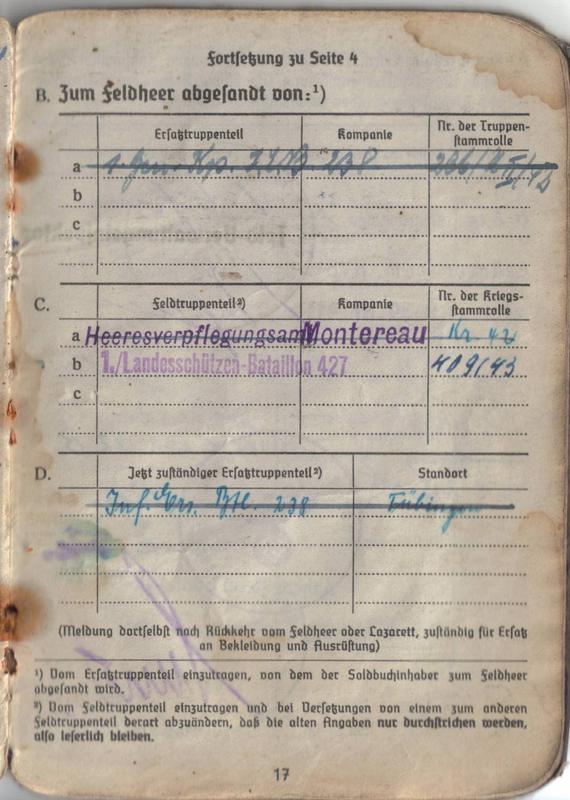 Fortsetzung zu Seite 4
B. Zum Feldheer abgesandt von:¹)
Ersatztruppenteil Kompanie Nr. der Truppen-
stammrolle
a
b
c
C. Feldtruppenteil²) Kompanie Nr. der Kriegs-
stammrolle
a Heeresverpflegungsamt Montereau Kr. 42
b 1./Landesschützen-Bataillon 427 409/43
c
D. Jetzt zuständiger Ersatztruppenteil²) Standort
Inf. Ers. Btl. 238 Tübingen
(Meldung dortselbst nach Rückkehr vom Feldheer oder Lazarett, zuständig für Ersatz
an Bekleidung und Ausrüstung)
¹) Vom Ersatztruppenteil einzutragen, von dem der Soldbuchinhaber zum Feldheer
abgesandt wird.
²) Vom Feldtruppenteil einzutragen und bei Versetzungen von einem zum anderen
Feldtruppenteil derart abzuändern, daß die alten Angaben nur durchstrichen werden,
also leserlich bleiben.
17